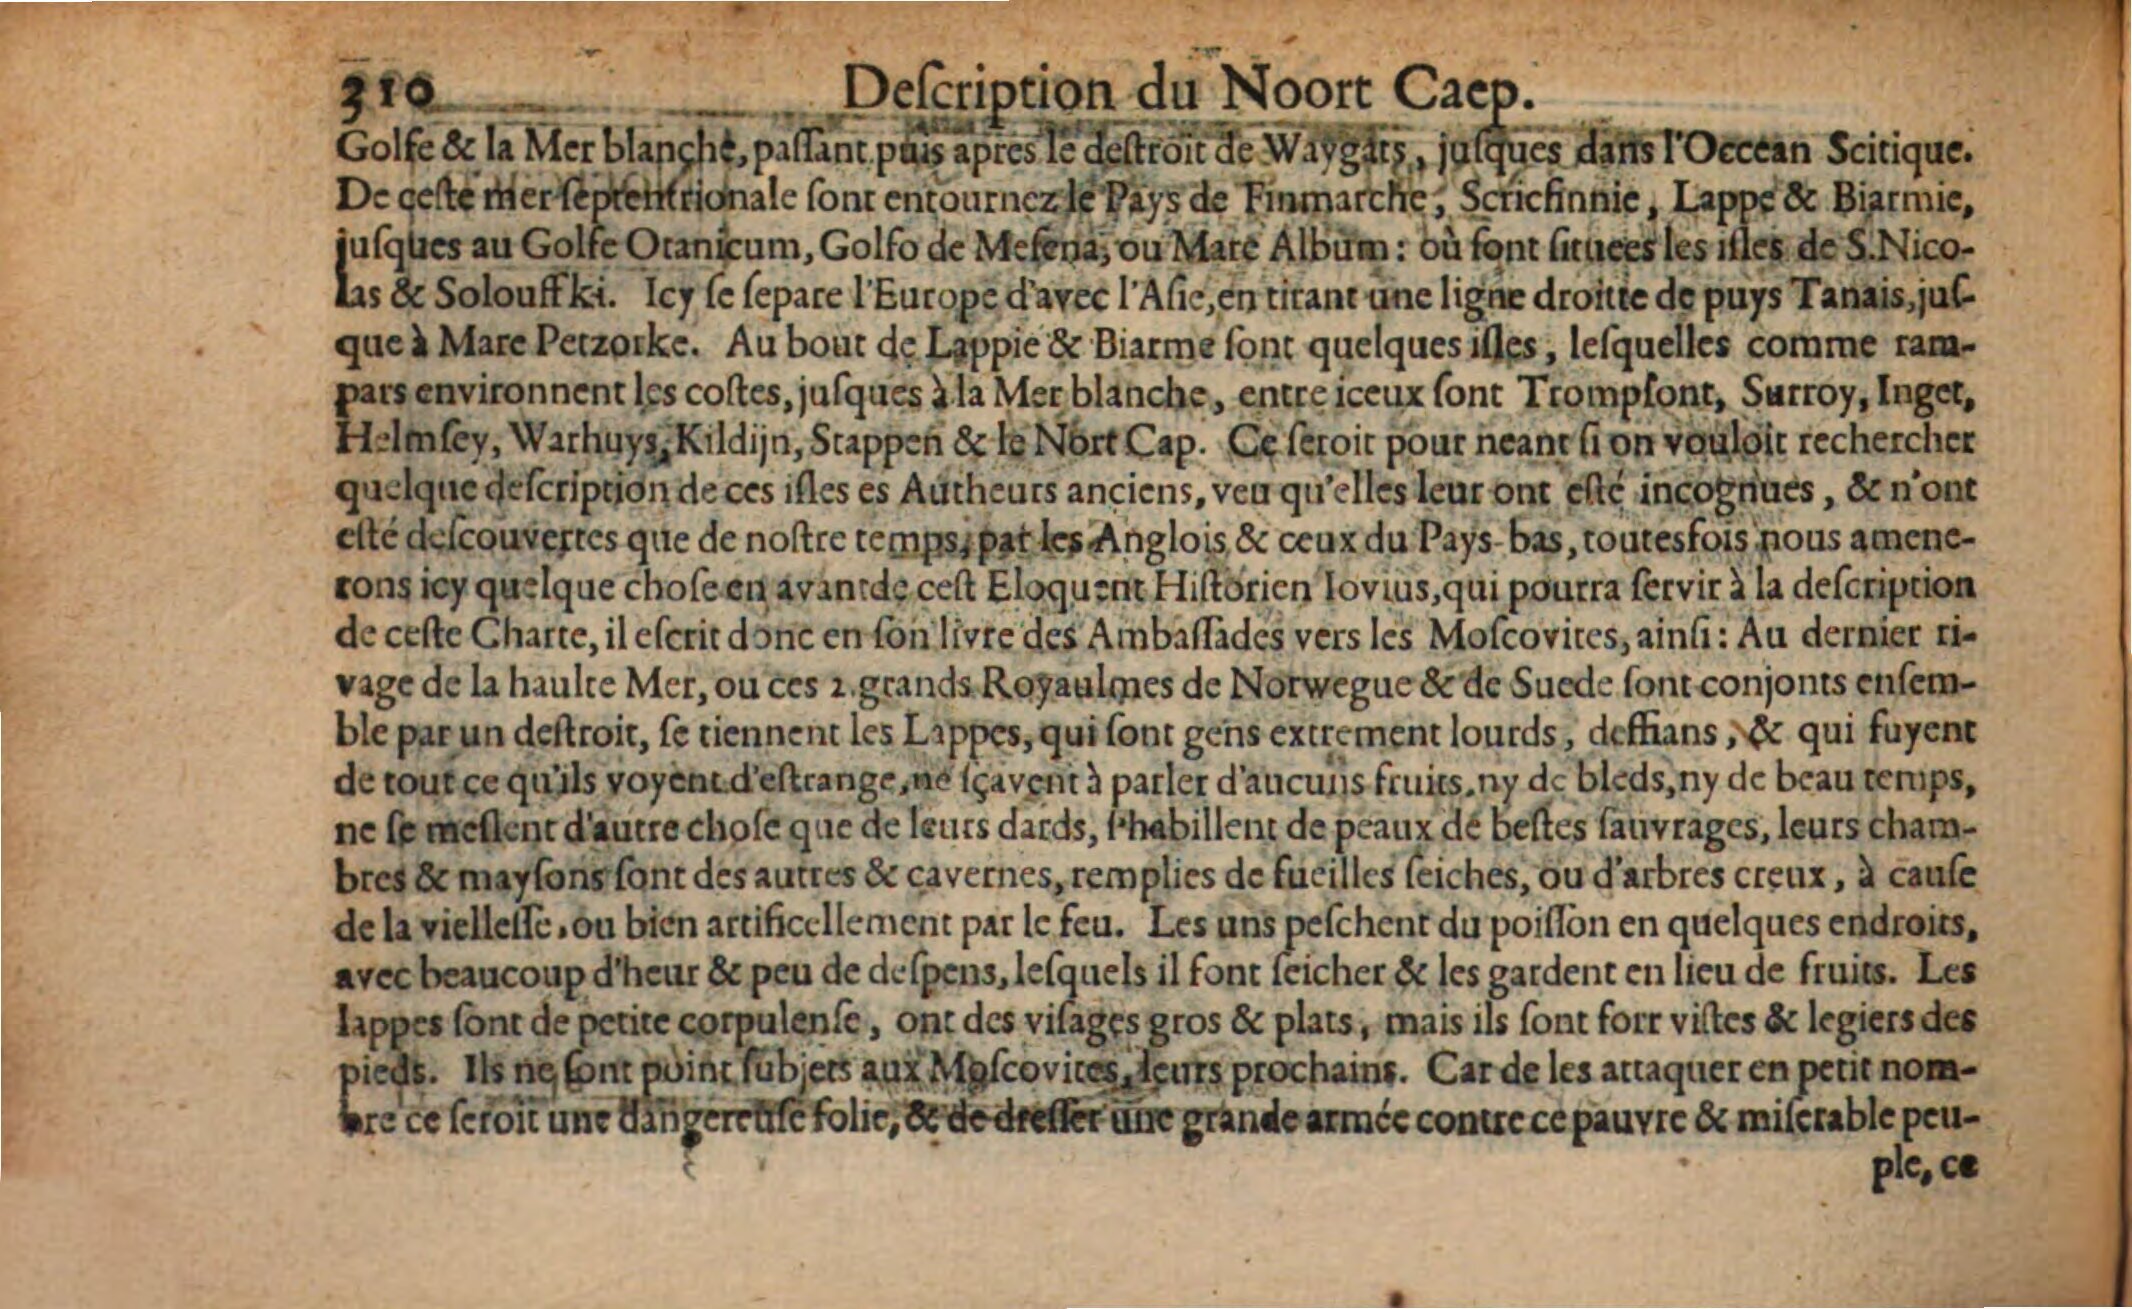 310 Deſcription du Noort Caep.
Golfe & la Mer blanche, paſſant puis apres le deſtroit de Waygats, juſques dans l'Occean Scitique.
De ceſte mer ſeptentrionale ſont entournez le Pays de Finmarche, Scricfinnie, Lappe & Biarmie,
juſques au Golfe Otanicum, Golfo de Meſena, ou Mare Album: où ſont ſituees les iſles de S. Nico-
las & Solouffki. Icy ſe ſepare l'Europe d'avec l'Aſie, en tirant une ligne droitte de puys Tanais, juſ-
que à Mare Petzorke. Au bout de Lappie & Biarme ſont quelques iſles, leſquelles comme ram-
pars environnent les coſtes, juſques à la Mer blanche, entre iceux ſont Trompſont, Surroy, Inget,
Helmſey, Warhuys, Kildijn, Stappen & le Nort Cap. Ce ſeroit pour neant ſi on vouloit rechercher
quelque deſcription de ces iſles es Autheurs anciens, veu qu'elles leur ont eſté incognues, & n'ont
eſté deſcouvertes que de noſtre temps, par les Anglois & ceux du Pays-bas, toutesfois nous amene-
rons icy quelque choſe en avant de ceſt Eloquent Hiſtorien Iovius, qui pourra ſervir à la deſcription
de ceſte Charte, il eſcrit donc en ſon livre des Ambaſſades vers les Moſcovites, ainſi: Au dernier ri-
vage de la haulte Mer, ou ces 2. grands Royaulmes de Norwegue & de Suede ſont conjonts enſem-
ble par un deſtroit, ſe tiennent les Lappes, qui ſont gens extrement lourds, deffians, & qui fuyent
de tout ce qu'ils voyent d'eſtrange, ne ſçavent à parler d'aucuns fruits, ny de bleds, ny de beau temps,
ne ſe meſlent d'autre choſe que de leurs dards, ſ'habillent de peaux de beſtes ſauvrages, leurs cham-
bres & mayſons ſont des autres & cavernes, remplies de fueilles ſeiches, ou d'arbres creux, à cauſe
de la vielleſſe, ou bien artificellement par le feu. Les uns peſchent du poiſſon en quelques endroits,
avec beaucoup d'heur & peu de deſpens, leſquels il font ſeicher & les gardent en lieu de fruits. Les
lappes ſont de petite corpulenſe, ont des viſages gros & plats, mais ils ſont forr viſtes & legiers des
pieds. Ils ne ſont point ſubjets aux Moſcovites, leurs prochains. Car de les attaquer en petit nom-
bre ce ſeroit une dangereuſe folie, & de dreſſer une grande armée contre ce pauvre & miſerable peu-
ple, ce